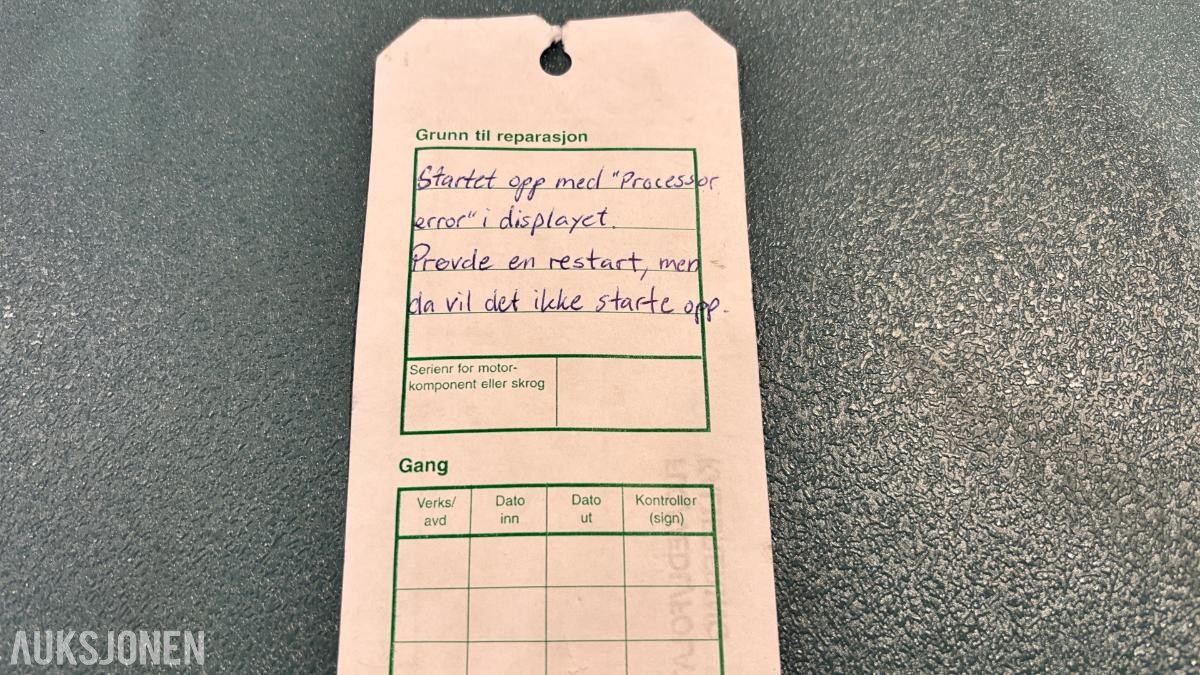 Grunn til reparasjon
Startet opp med "Processor
error" i displayet.
Prøvde en restart, men
da vil det ikke starte opp.
Serienr for motor-
komponent eller skrog
Gang
Verks/
avd
Dato
inn
Dato
ut
Kontrollør
(sign)
AUKSJONEN